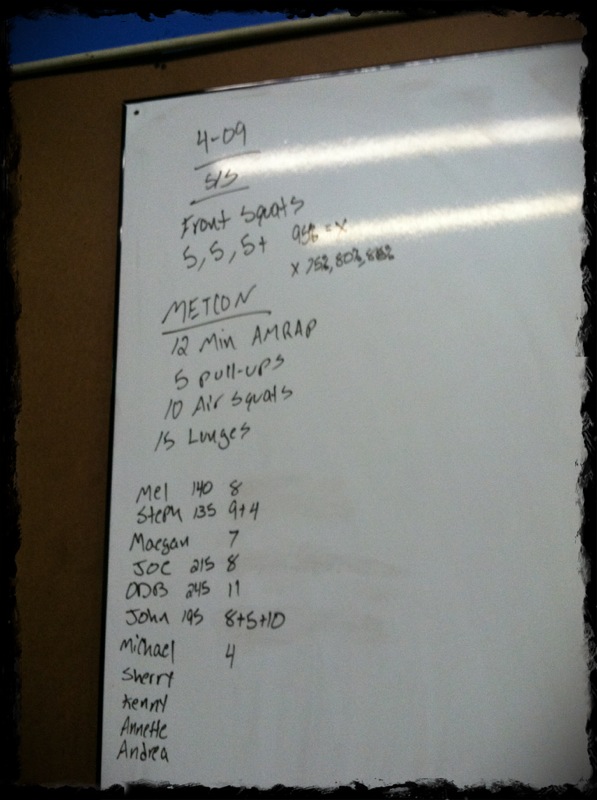 4-09
S/S
Front Squats
5, 5, 5+ 95% = x
x 75%, 80%, 85%
METCON
12 Min AMRAP
5 Pull-ups
10 Air Squats
15 Lunges
Mel 140 8
Steph 135 9+4
Maegan 7
JOE 215 8
ODB 245 11
John 195 8+5+10
Michael 4
Sherry
Kenny
Annette
Andrea